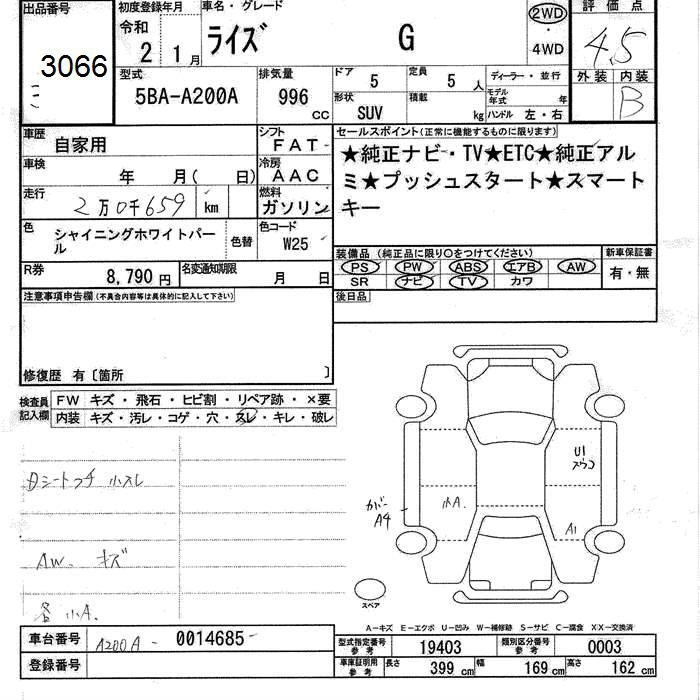 出品番号 初度登録年月 車名・グレード 評価点
3066 令和 2 1月 ライズ G 2WD ・ 4WD 4.5
型式 排気量 ドア 5 定員 5 人 ディーラー・並行 外装 内装
5BA-A200A 996 CC 形状 SUV 積載 kg モデル年式 年 B
ハンドル 左・右
車歴 自家用 シフト FAT
車検 年 月( 日) 冷房 AAC
走行 2万0千659 km 燃料 ガソリン
色 シャイニングホワイトパール 色替 色コード W25
R券 8,790円 名変通知期限 月 日
セールスポイント(正常に機能するものに限ります)
★純正ナビ・TV★ETC★純正アル
ミ★プッシュスタート★スマート
キー
装備品 (純正品に限り○をつけてください) 新車保証書
PS PW ABS エアB AW 有・無
SR ナビ TV カワ
後日品
注意事項申告欄(不具合内容等は具体的に記入して下さい)
修復歴 有〔箇所 〕
検査員記入欄 FW キズ・飛石・ヒビ割・リペア跡・×要
内装 キズ・汚レ・コゲ・穴・スレ・キレ・破レ
Dシートフチ 小スレ
AW. キズ
各 小A.
U1
スウコ
小A.
カバー
A4
A1
スペア
A-キズ E-エクボ U-凹み W-補修跡 S-サビ C-腐食 XX-交換済
車台番号 A200A- 0014685
登録番号
型式指定番号 参考 19403 類別区分番号 参考 0003
車庫証明用 参考 長さ 399 cm 幅 169 cm 高さ 162 cm